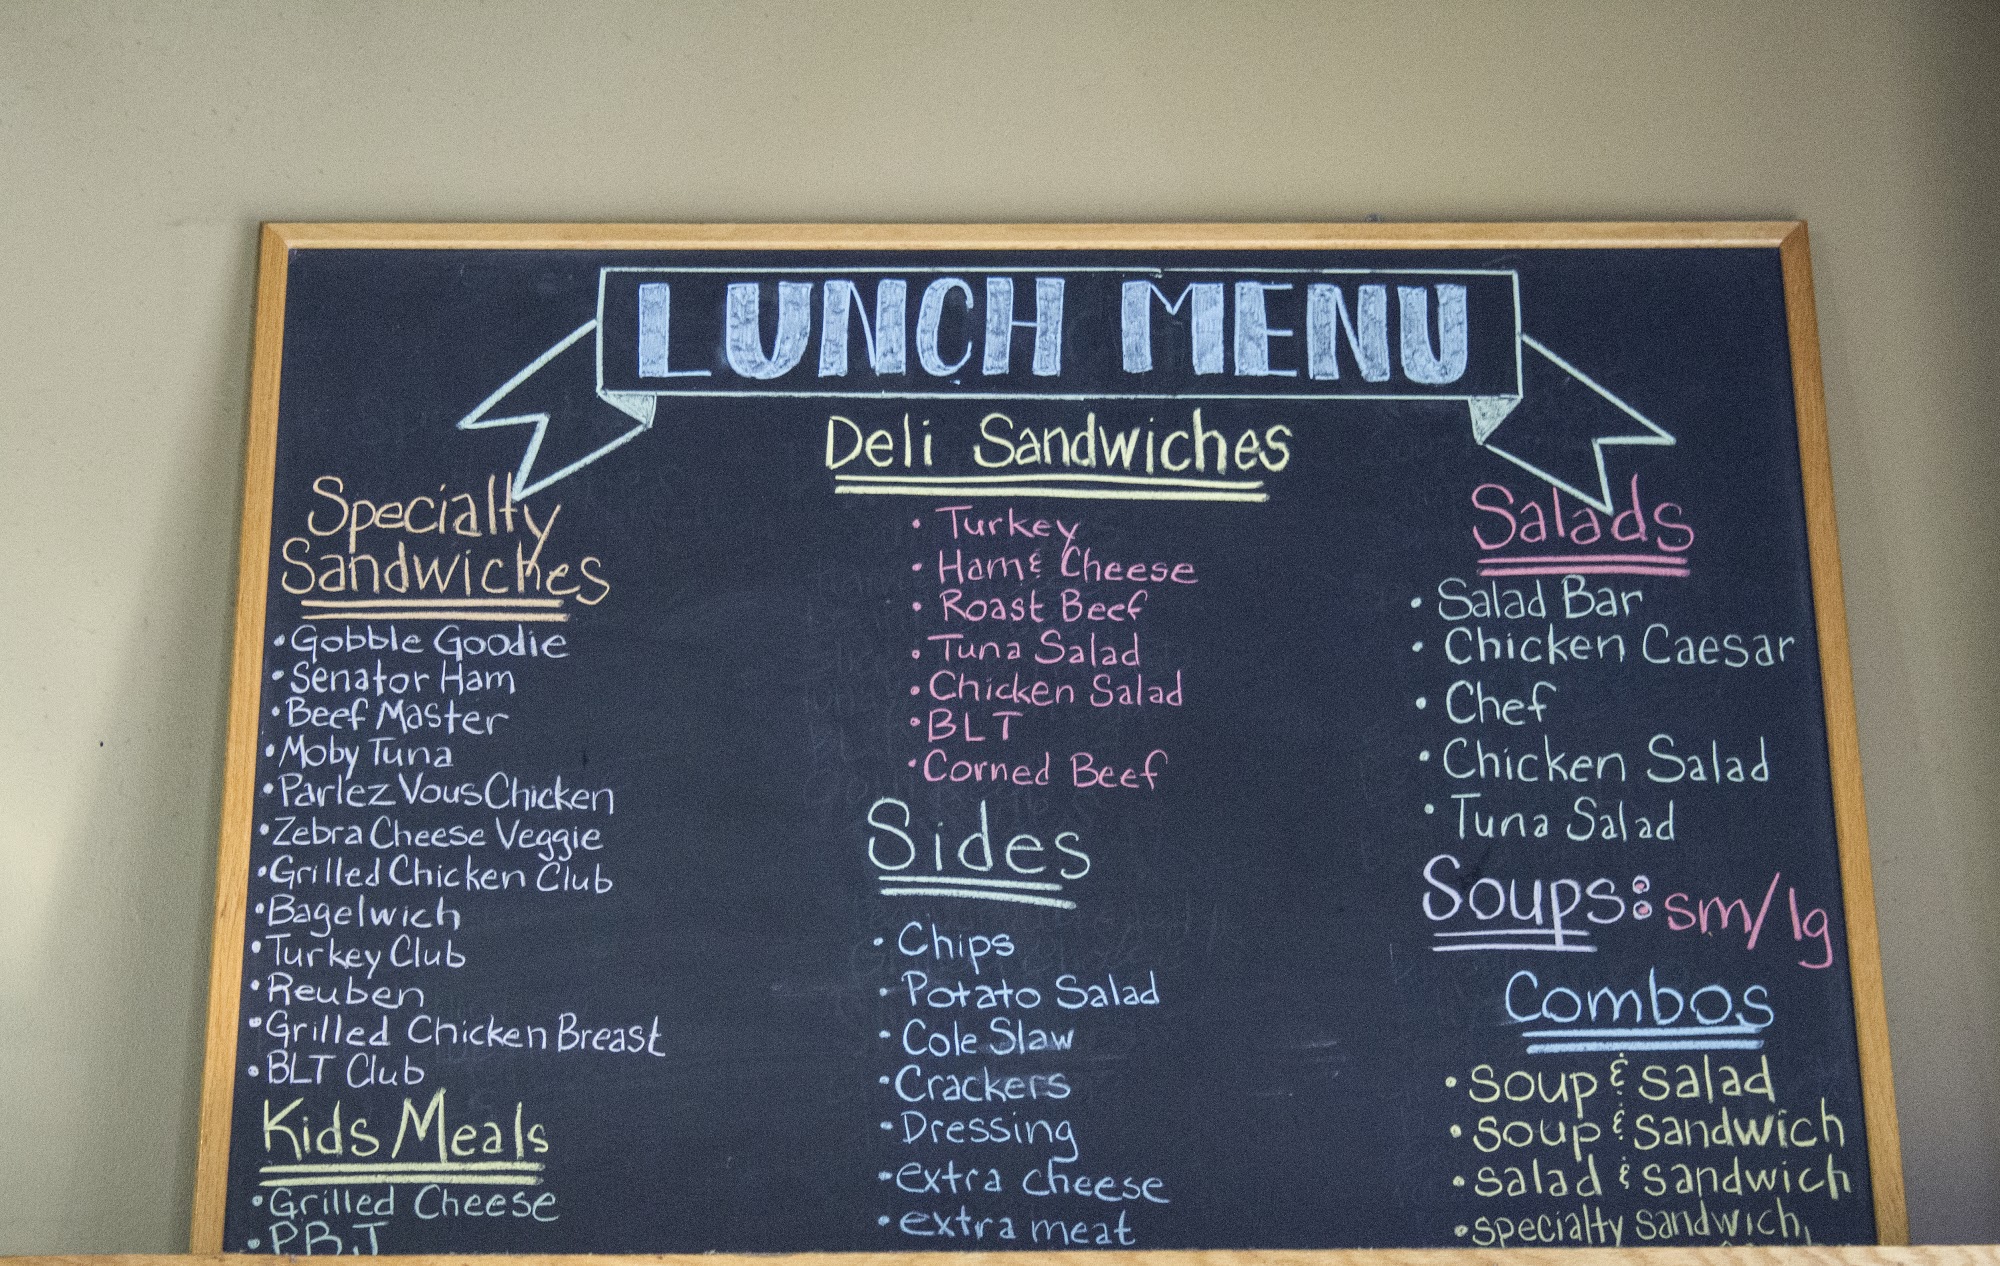 LUNCH MENU
Specialty
Sandwiches
• Gobble Goodie
• Senator Ham
• Beef Master
• Moby Tuna
• Parlez Vous Chicken
• Zebra Cheese Veggie
• Grilled Chicken Club
• Bagelwich
• Turkey Club
• Reuben
• Grilled Chicken Breast
• BLT Club
Kids Meals
• Grilled Cheese
• PBJ
Deli Sandwiches
• Turkey
• Ham & Cheese
• Roast Beef
• Tuna Salad
• Chicken Salad
• BLT
• Corned Beef
Sides
• Chips
• Potato Salad
• Cole Slaw
• Crackers
• Dressing
• extra cheese
• extra meat
Salads
• Salad Bar
• Chicken Caesar
• Chef
• Chicken Salad
• Tuna Salad
Soups: sm/lg
Combos
• soup & salad
• soup & sandwich
• salad & sandwich
• specialty sandwich,